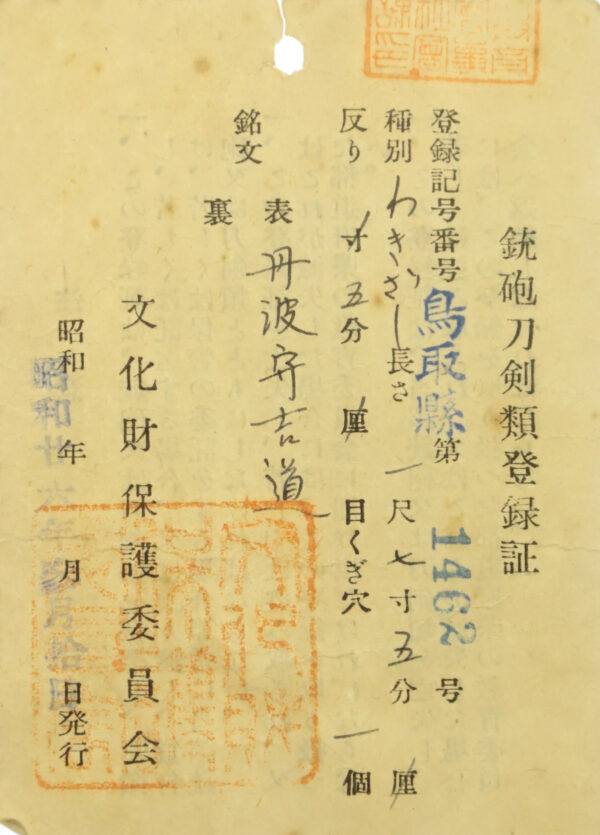 銃砲刀剣類登録証
登録記号番号 鳥取縣 第 1462 号
種別 わきざし 長さ 一尺七寸五分 厘
反り 寸五分 厘 目くぎ穴 一個
銘文 表 丹波守吉道
裏
文化財保護委員会
昭和 年 月 日発行
昭和廿六年 月拾日